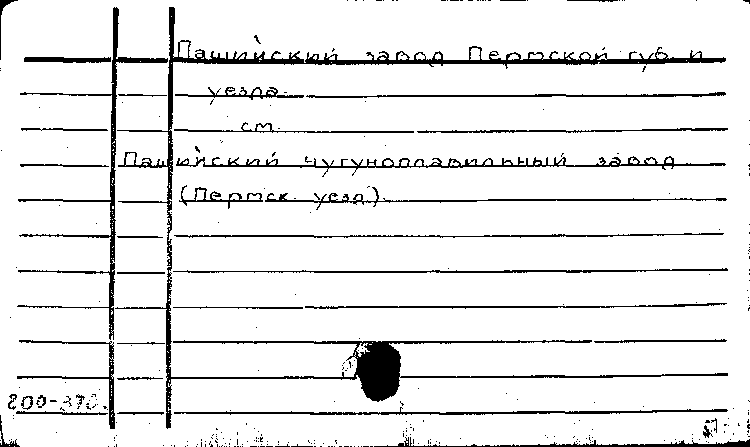 Пашийский завод Пермской губ. и
уезда
см.
Пашийский чугуноплавильный завод
(Пермск. уезд).
200-370.